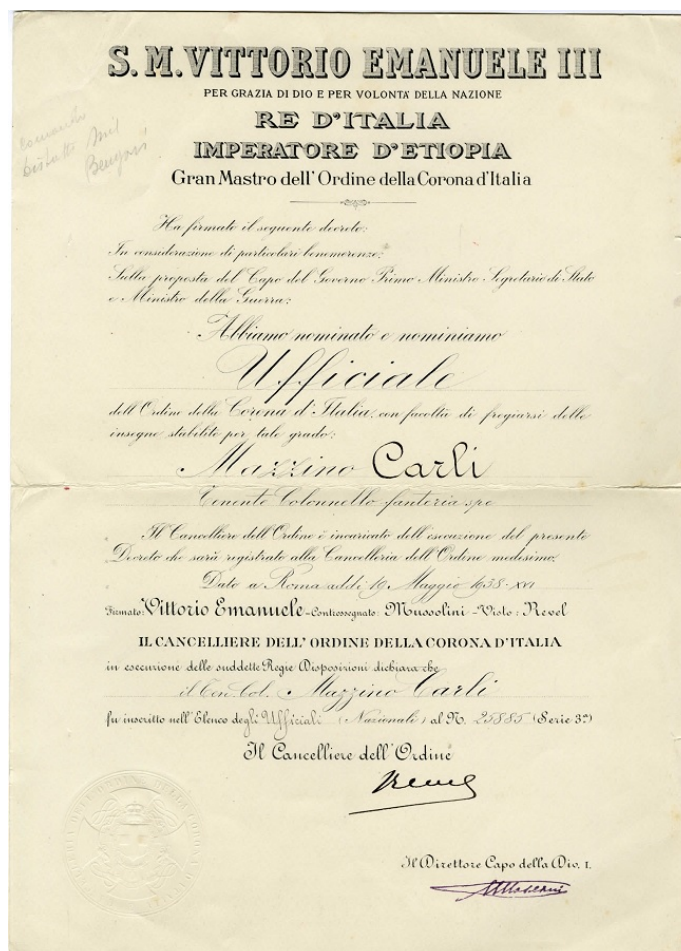 S. M. VITTORIO EMANUELE III
PER GRAZIA DI DIO E PER VOLONTA' DELLA NAZIONE
RE D'ITALIA
IMPERATORE D'ETIOPIA
Gran Mastro dell'Ordine della Corona d'Italia
comando
Ha firmato il seguente decreto:
In considerazione di particolari benemerenze;
Sulla proposta del Capo del Governo Primo Ministro Segretario di Stato
e Ministro della Guerra;
Abbiamo nominato e nominiamo
Ufficiale
dell'Ordine della Corona d'Italia, con facoltà di fregiarsi delle
insegne stabilite per tale grado:
Mazzino Carli
Tenente Colonnello fanteria spe
Il Cancelliere dell'Ordine è incaricato dell'esecuzione del presente
Decreto che sarà registrato alla Cancelleria dell'Ordine medesimo.
Dato a Roma addì 19 Maggio 1938-XVI
Firmato: Vittorio Emanuele - Contrassegnato: Mussolini - Visto: Revel
IL CANCELLIERE DELL'ORDINE DELLA CORONA D'ITALIA
in esecuzione delle suddette Regie Disposizioni dichiara che
il Ten. Col. Mazzino Carli
fu inscritto nell'Elenco degli Ufficiali (Nazionali) al N. 25885 (Serie 3ª)
Il Cancelliere dell'Ordine
Il Direttore Capo della Div. 1.